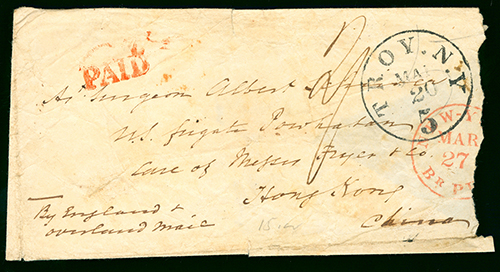 PAID
TROY. N.Y
MA
20
5
As' surgeon Albert
U.S. frigate Powhatan
Care of Messrs Fryer & Co.
Hong Kong
China
W-Y
MAR
27
BR P
By England &
overland mail
15.